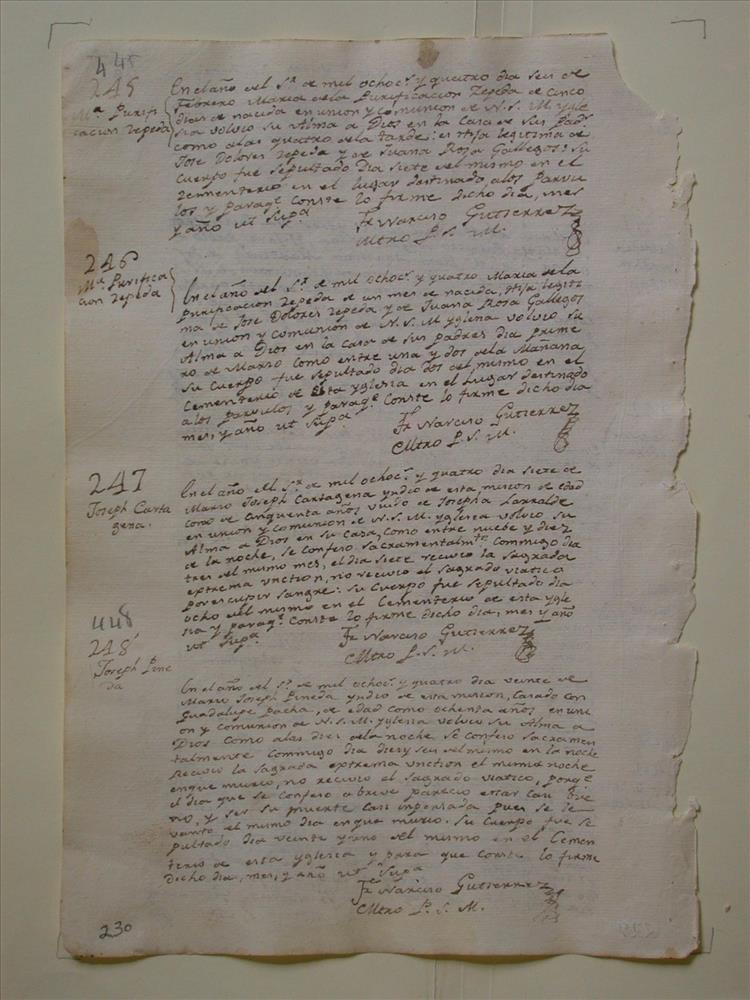 445
245
Mª Purifi
cacion Zepeda
En el año del Sr. de mil ochocs. y quatro dia seis de
Febrero Maria de la Purificacion Zepeda de cinco
dias de nacida en union y comunion de N. S. M. Ygle
sia volvio su Alma a Dios en la Casa de sus Pads.
como a las quatro de la tarde: es Hija legitima de
Jose Dolores Zepeda y de Juana Rosa Gallegos: su
Cuerpo fue sepultado Dia siete del mismo en el
Zementerio en el lugar destinado a los Parvu
los y paraqe. Conste lo firme dicho dia, mes
y año ut Supª
Fr. Narciso Gutierrez
Mtro P. S. M.
246
Mª Purifica
cion Zepeda
En el año del Sr. de mil ochocs. y quatro Maria de la
Purificacion Zepeda de un mes de nacida, Hija legiti
ma de Jose Dolores Zepeda y de Juana Rosa Gallegos
en union y comunion de N. S. M Yglesia volvio su
Alma a Dios en la Casa de sus padres dia prime
ro de Marzo como entre una y dos de la Mañana
su Cuerpo fue sepultado dia dos del mismo en el
Cementerio de esta Yglesia en el Lugar destinado
a los parvulos y paraqe. Conste lo firme dicho dia
mes, y año ut Supª
Fr. Narciso Gutierrez
Mtro P. S. M.
247
Joseph Carta
gena.
En el año del Sr. de mil ochocs. y quatro dia siete de
Marzo Joseph Cartagena yndio de esta mision de edad
como de cinquenta años viudo de Josepha Larralde
en union y comunion de N. S. M. Yglesia volvio su
Alma a Dios en su Casa, como entre nuebe y diez
de la noche, se confeso sacramentalmte. commigo dia
tres del mismo mes, el dia siete recivio la sagrada
extrema vnction, no recivio el sagrado viatico
por escupir sangre: su Cuerpo fue sepultado dia
ocho del mismo en el Cementerio de esta Ygle
sia y paraqe. Conste lo firme dicho dia, mes y año
ut Supª
Fr. Narciso Gutierrez
Mtro P. S. M.
448
248
Joseph Pine
da
En el año del Sr. de mil ochocs. y quatro dia veinte de
Marzo Joseph Pineda yndio de esta mision, Casado con
Guadalupe Pacha, de edad como ochenta años en uni
on y comunion de N. S. M. Yglesia volvio su Alma a
Dios como a las diez de la noche se confeso sacramen
talmente commigo dia diez y seis del mismo en la noche
recivio la sagrada extrema vnction el misma noche
en que murio, no recivio el sagrado viatico, porqe
el dia que se confeso a breve parecio estar casi bue
no, y ser su muerte casi inpensada pues se le
vanto el mismo dia en que murio. su Cuerpo fue se
pultado dia veinte y uno del mismo en el Cemen
terio de esta Yglesia y para que Conste lo firme
dicho dia, mes, y año ut Supª
Fr. Narciso Gutierrez
Mtro P. S. M.
230